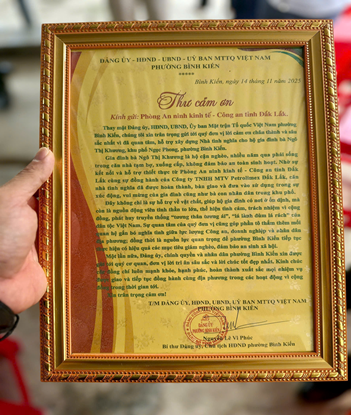 ĐẢNG ỦY - HĐND - UBND - UỶ BAN MTTQ VIỆT NAM
PHƯỜNG BÌNH KIẾN
*****
Bình Kiến, ngày 14 tháng 11 năm 2025
Thư cảm ơn
Kính gửi: Phòng An ninh kinh tế - Công an tỉnh Đắk Lắk.
Thay mặt Đảng ủy, HĐND, UBND, Uỷ ban Mặt trận Tổ quốc Việt Nam phường
Bình Kiến, chúng tôi xin trân trọng gửi tới quý đơn vị lời cảm ơn chân thành và sâu
sắc nhất vì đã quan tâm, hỗ trợ xây dựng Nhà tình nghĩa cho hộ gia đình bà Ngô
Thị Khương, khu phố Ngọc Phong, phường Bình Kiến.
Gia đình bà Ngô Thị Khương là hộ cận nghèo, nhiều năm qua phải sống
trong căn nhà tạm bợ, xuống cấp, không đảm bảo an toàn sinh hoạt. Nhờ sự
kết nối và hỗ trợ thiết thực từ Phòng An ninh kinh tế - Công an tỉnh Đắk
Lắk cùng sự đồng hành của Công ty TNHH MTV Petrolimex Đắk Lắk, căn
nhà tình nghĩa đã được hoàn thành, bàn giao và đưa vào sử dụng trong sự
xúc động, vui mừng của gia đình cũng như bà con nhân dân trong khu phố.
Đây không chỉ là sự hỗ trợ về vật chất, giúp hộ gia đình có nơi ở ổn định, mà
còn là nguồn động viên tinh thần to lớn, thể hiện tình cảm, trách nhiệm vì cộng
đồng, phát huy truyền thống "tương thân tương ái", "lá lành đùm lá rách" của
dân tộc Việt Nam. Sự quan tâm của quý đơn vị cũng góp phần tô thắm thêm mối
quan hệ gắn bó nghĩa tình giữa lực lượng Công an, doanh nghiệp và nhân dân
địa phương; đồng thời là nguồn lực quan trọng để phường Bình Kiến tiếp tục
thực hiện có hiệu quả các mục tiêu giảm nghèo, đảm bảo an sinh xã hội.
Một lần nữa, Đảng ủy, chính quyền và nhân dân phường Bình Kiến xin được
gửi tới quý cơ quan, đơn vị lời tri ân sâu sắc và lời chúc tốt đẹp nhất. Kính chúc
các đồng chí luôn mạnh khỏe, hạnh phúc, hoàn thành xuất sắc mọi nhiệm vụ
được giao và tiếp tục đồng hành cùng địa phương trong các hoạt động vì cộng
đồng trong thời gian tới.
Xin trân trọng cảm ơn!
T/M ĐẢNG ỦY, HĐND, UBND, UỶ BAN MTTQ VIỆT NAM
PHƯỜNG BÌNH KIẾN
Nguyễn Lê Vi Phúc
Bí thư Đảng ủy, Chủ tịch HĐND phường Bình Kiến